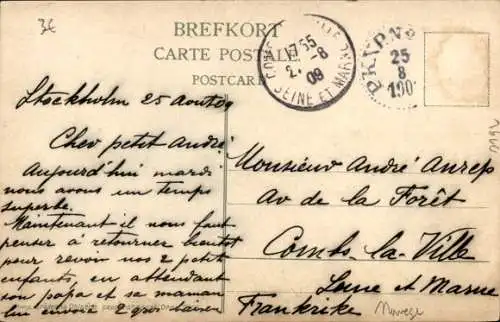 3€
BREFKORT
CARTE POSTALE
POSTCARD
COMBS LA VILLE
17 55
2 -8
09
SEINE ET MARNE
PKXP.N
25
8
190
Stockholm 25 Aout 09
Cher petit André
Aujourd'hui mardi
nous avons un temps
superbe.
Maintenant il nous faut
penser à retourner bientot
pour revoir nos 2 petits
enfants, en attendant
son papa et sa maman
lui envoie 2 gros baiser
Monsieur André Anrep
Av de la Forêt
Combs-la-Ville
Seine et Marne
Frankrike
Norvege